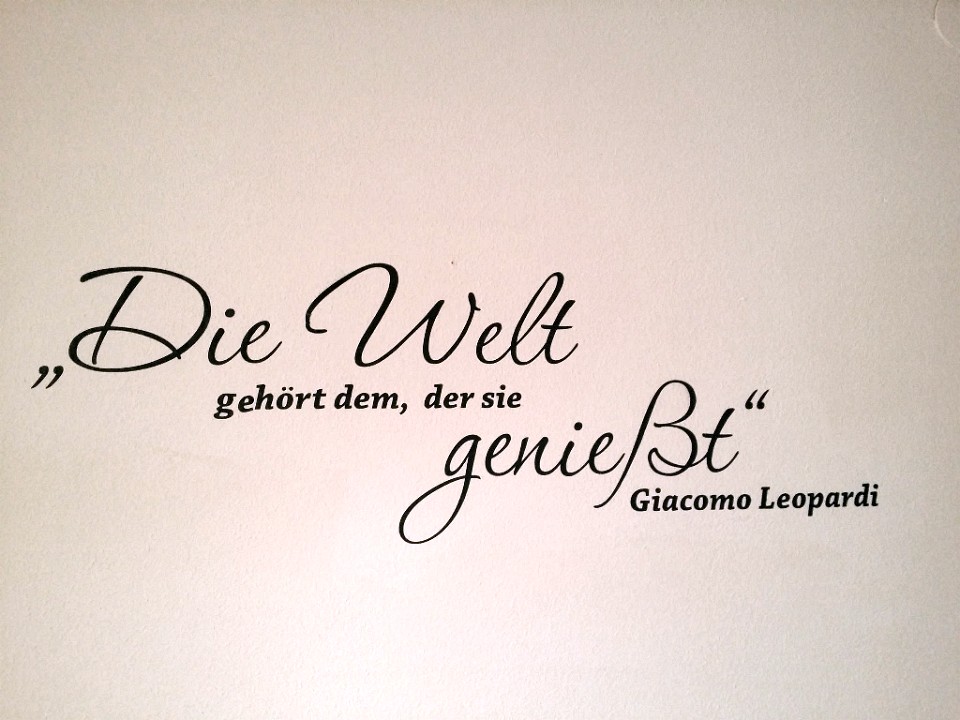 „Die Welt
gehört dem, der sie
genießt“
Giacomo Leopardi